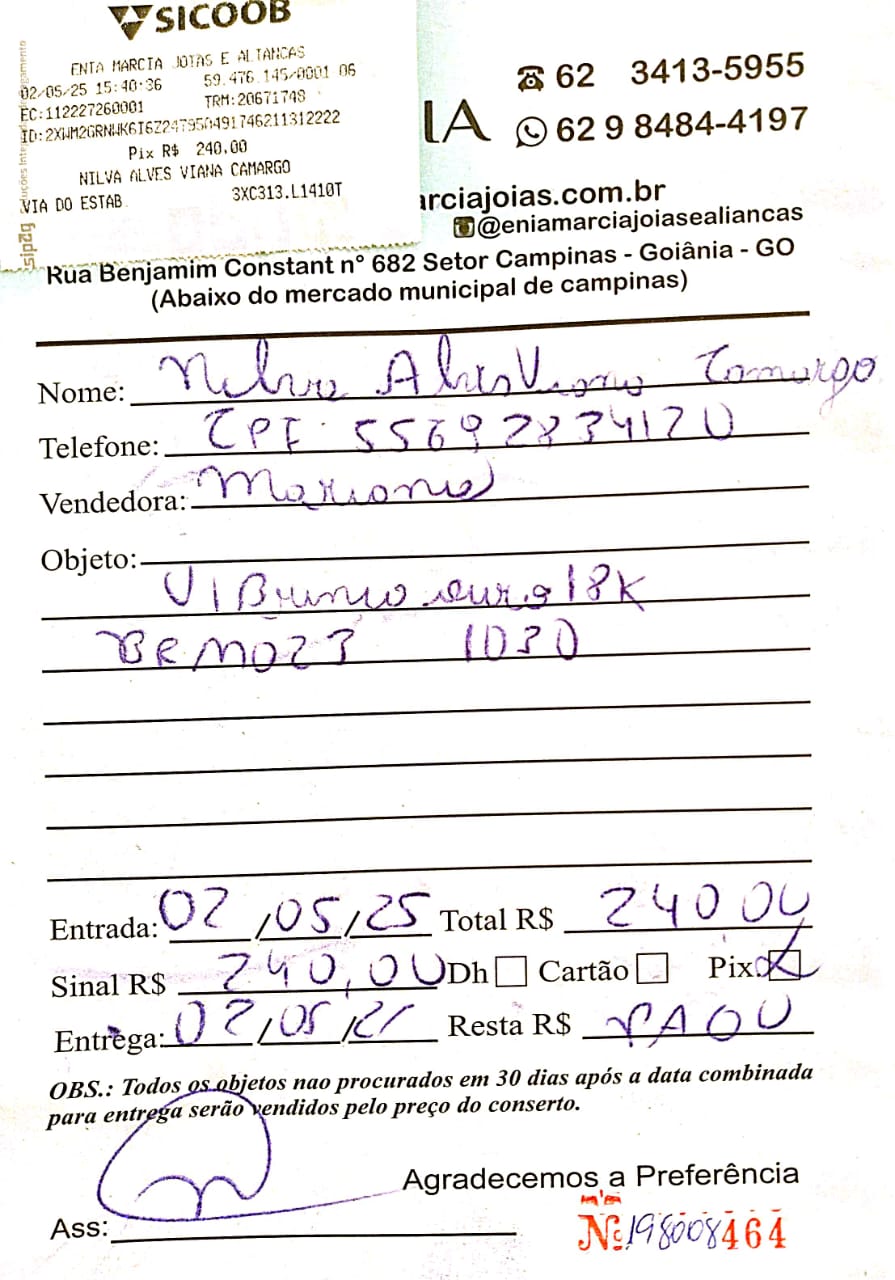 SICOOB
ENIA MARCIA JOIAS E ALIANCAS
02/05/25 15:40:36 59.476.145/0001 06
EC:112227260001 TRM:20671748
ID:2XWM2GRNWK6I6Z247950491746211312222
Pix R$ 240.00
NILVA ALVES VIANA CAMARGO
VIA DO ESTAB. 3XC313.L1410T
sipag
IA
62 3413-5955
62 9 8484-4197
arciajoias.com.br
@eniamarciajoiasealiancas
Rua Benjamim Constant n° 682 Setor Campinas - Goiânia - GO
(Abaixo do mercado municipal de campinas)
Nome: Nilva Alves Viana Camargo
Telefone: CPF 55692834120
Vendedora: Mariana
Objeto:
01 Brinco ouro 18K
BRM023 1030
Entrada: 02/05/25 Total R$ 240 00
Sinal R$ 240,00 Dh Cartão Pix
Entrega: 02/05/25 Resta R$ PAGO
OBS.: Todos os objetos nao procurados em 30 dias após a data combinada
para entrega serão vendidos pelo preço do conserto.
Agradecemos a Preferência
Ass:
Nº 198008464